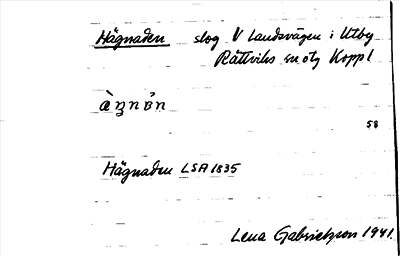 Hägnaden slog V Landsvägen i Utby
Rättviks sn otg Koppl
58
Hägnaden LSA 1835
Lena Gabrielsson 1941